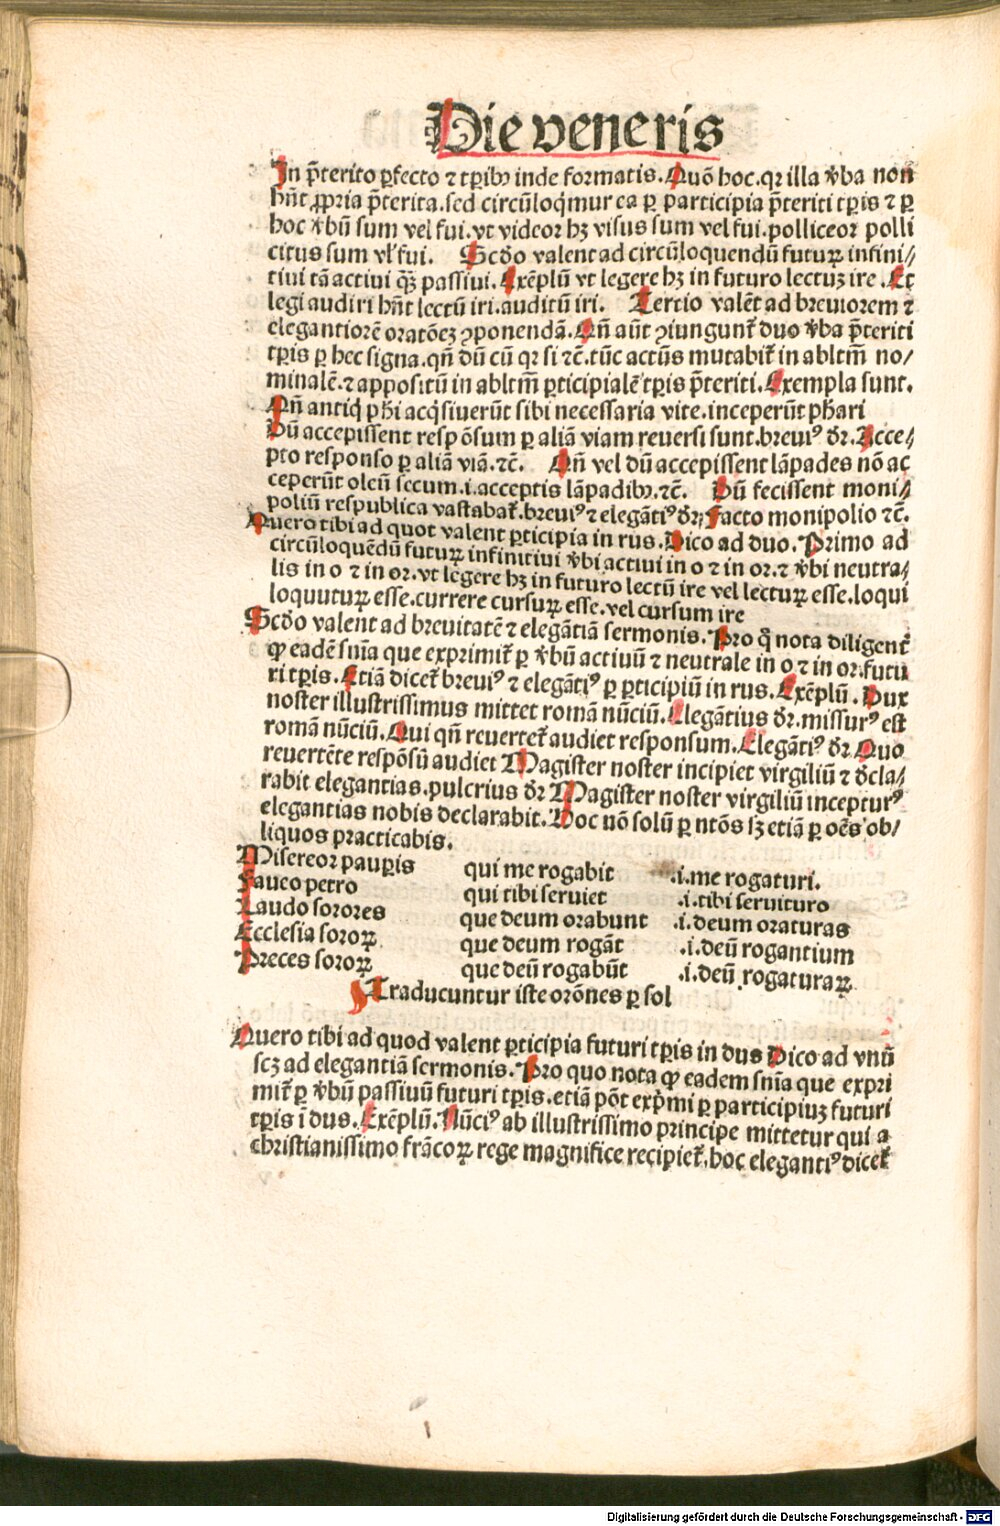 Die veneris
In p̄terito ꝑfecto ⁊ tꝑibꝫ inde formatis. Quō hoc. qꝛ illa v̄ba non
hn̄t ꝓpria p̄terita. sed circūloqͥmur ea ꝑ participia p̄teriti tꝑis ⁊ ꝑ
hoc v̄bū sum vel fui. vt videor hꝫ visus sum vel fui. polliceor polli
citus sum vl̓ fui. Scd̓o valent ad circūloquendū futuꝝ infini/
tiui tā actiui qꝫ̄ passiui. Exēplū vt legere hꝫ in futuro lectuꝫ ire. Et
legi audiri hn̄t lectū iri. auditū iri. Tertio valēt ad breuiorem ⁊
elegantiorē oratōeꝫ ꝯponendā. Qn̄ aūt ꝯiungunt᷑ duo v̄ba p̄teriti
tꝑis ꝑ hec signa. qn̄ dū cū qꝛ si ⁊c̄. tūc actiūs mutabit᷑ in abltm̄ no/
minalē. ⁊ appositū in abltm̄ ꝑticipialē tꝑis p̄teriti. Exempla sunt.
Qn̄ antiqͥ ph̄i acqͥsiuerūt sibi necessaria vite. inceperūt ph̄ari
Dū accepissent respōsum ꝑ aliā viam reuersi sunt. breuiꝰ d̓r. Acce/
pto responso ꝑ aliā viā. ⁊c̄. Qn̄ vel dū accepissent lāpades nō ac
ceperūt oleū secum. i. acceptis lāpadibꝫ. ⁊c̄. Dū fecissent moni/
poliū respublica vastabat᷑. breuiꝰ ⁊ elegātiꝰ d̓r. Facto monipolio ⁊c̄.
Quero tibi ad quot valent ꝑticipia in rus. Dico ad duo. Primo ad
circūloquēdū futuꝝ infinitiui v̄bi actiui in o ⁊ in or. ⁊ v̄bi neutra/
lis in o ⁊ in or. vt legere hꝫ in futuro lectū ire vel lectuꝝ esse. loqui
loquutuꝝ esse. currere cursuꝝ esse. vel cursum ire
Scd̓o valent ad breuitatē ⁊ elegātiā sermonis. Pro qͦ nota diligent᷑
ꝙ eadē sn̄ia que exprimit᷑ ꝑ v̄bū actiuū ⁊ neutrale in o ⁊ in or. futu
ri tꝑis. Etiā dicet᷑ breuiꝰ ⁊ elegātiꝰ ꝑ ꝑticipiū in rus. Exēplū. Dux
noster illustrissimus mittet romā nūciū. Elegātius d̓r. missurꝰ est
romā nūciū. Qui qn̄ reuertet᷑ audiet responsum. Elegātiꝰ d̓r Quo
reuertēte respōsū audiet Magister noster incipiet virgiliū ⁊ d̓cla/
rabit elegantias. pulcrius d̓r Magister noster virgiliū incepturꝰ
elegantias nobis declarabit. Hoc nō solū ꝑ ntōs sꝫ etiā ꝑ oēs ob/
liquos practicabis.
Misereor pauꝑis qui me rogabit .i. me rogaturi.
Faueo petro qui tibi seruiet .i. tibi seruituro
Laudo sorores que deum orabunt .i. deum oraturas
Ecclesia soroꝝ que deum rogāt .i. deū rogantium
Preces soroꝝ que deū rogabūt .i. deū rogaturaꝝ
Traducuntur iste orōnes ꝑ sol
Quero tibi ad quod valent ꝑticipia futuri tꝑis in dus Dico ad vnū
scꝫ ad elegantiā sermonis. Pro quo nota ꝙ eadem sn̄ia que expri
mit᷑ ꝑ v̄bū passiuū futuri tꝑis. etiā pōt exp̄mi ꝑ participiuꝫ futuri
tꝑis ī dus. Exēplū. Nūciꝰ ab illustrissimo principe mittetur qui a
christianissimo frācoꝝ rege magnifice recipiet᷑. hoc elegantiꝰ dicet᷑
Digitalisierung gefördert durch die Deutsche Forschungsgemeinschaft - DFG